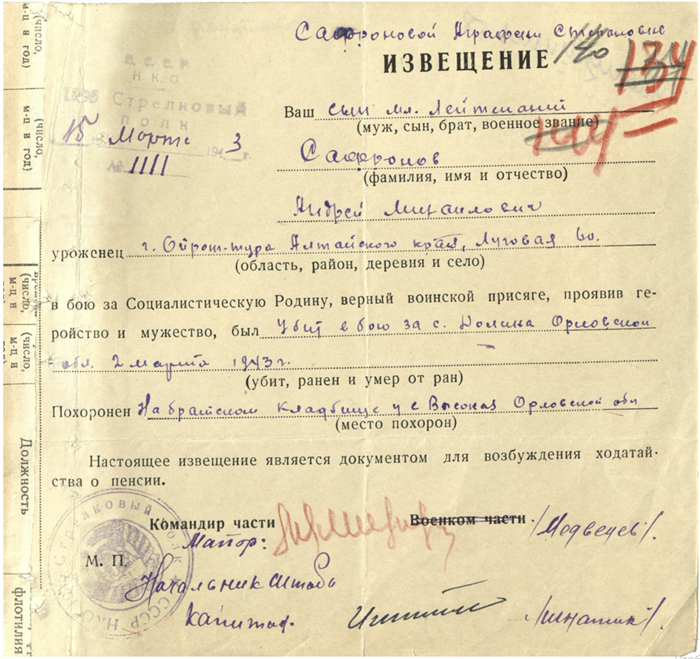 Сафроновой Аграфени Степановне
ИЗВЕЩЕНИЕ
140
134
С.С.С.Р.
Н К О
Стрелковый
ПОЛК
15 Марта 1943 г.
№ 1111
Ваш сын мл. Лейтенант
(муж, сын, брат, военное звание)
164
Сафронов
(фамилия, имя и отчество)
Андрей Михайлович
уроженец г. Ойрот-тура Алтайского края, Луговая 60.
(область, район, деревня и село)
в бою за Социалистическую Родину, верный воинской присяге, проявив ге-
ройство и мужество, был Убит в бою за с. Долина Орловской
обл. 2 марта 1943 г.
(убит, ранен и умер от ран)
Похоронен На братском кладбище у с Высокая Орловской обл
(место похорон)
Настоящее извещение является документом для возбуждения ходатай-
ства о пенсии.
Командир части
Военком части
Майор:
/Медведев/.
М. П.
Начальник Штаба
Капитан.
(число,
м-ц и год)
(число,
м-ц и год)
(число,
м-ц и
(число,
м-ц и
Должность
флотилия